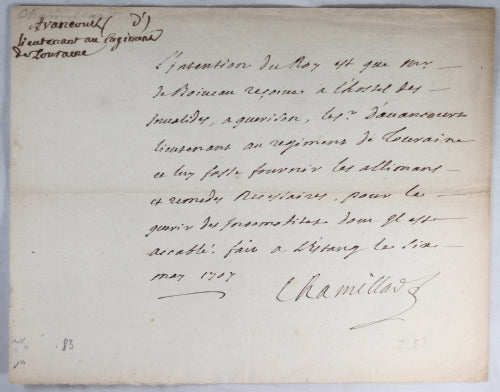 Avancourt d')
lieutenant au regiment
de Touraine
L'intention du Roy est que mr
de Boiveau reçoive a l'hostel des
Invalides, a guerison, le sr. d'avancourt
lieutenant au regiment de Touraine
et luy fasse fournir les alimans
et remedes necessaires, pour le
guerir des Incomoditez dont Il est
accablé. fait a L'Estang le six
may 1707
Chamillart
83
283